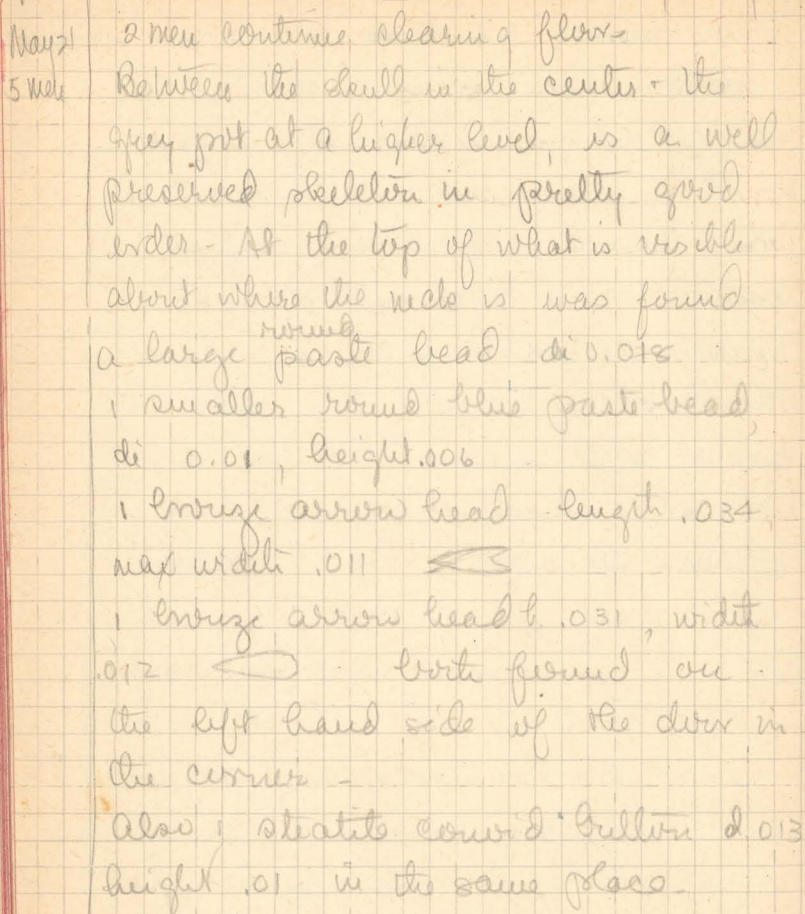 May 21 2 men continue clearing floor -
5 men Between the skull in the center & the
grey pot at a higher level, is a well
preserved skeleton in pretty good
order - At the top of what is visible
about where the neck is was found
round
a large paste bead di 0.018
1 smaller round blue paste bead,
di 0.01, height .006
1 bronze arrow head length .034
max width .011
1 bronze arrow head l. .031, width
.012 both found on
the left hand side of the door in
the corner -
Also 1 steatite conoid button d .013
height .01 in the same place -